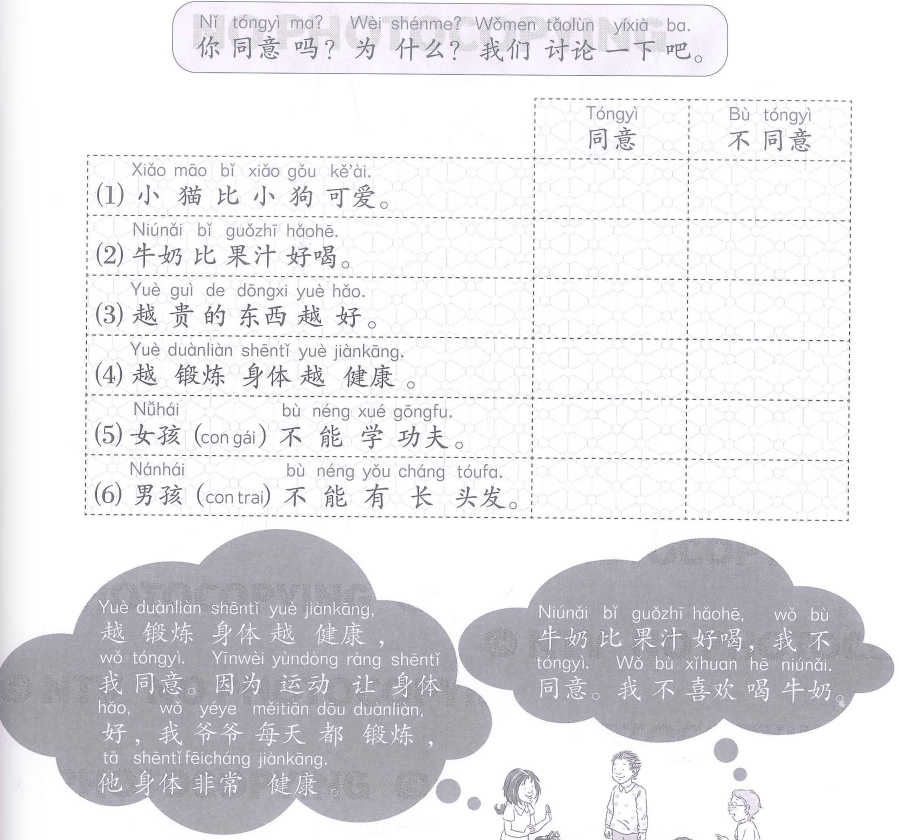 Nǐ tóngyì ma? Wèi shénme? Wǒmen tǎolùn yíxià ba.
你同意吗？为什么？我们讨论一下吧。
Tóngyì Bù tóngyì
同意 不同意
Xiǎo māo bǐ xiǎo gǒu kě'ài.
(1) 小猫比小狗可爱。
Niúnǎi bǐ guǒzhī hǎohē.
(2) 牛奶比果汁好喝。
Yuè guì de dōngxi yuè hǎo.
(3) 越贵的东西越好。
Yuè duànliàn shēntǐ yuè jiànkāng.
(4) 越锻炼身体越健康。
Nǚhái bù néng xué gōngfu.
(5) 女孩 (con gái) 不能学功夫。
Nánhái bù néng yǒu cháng tóufa.
(6) 男孩 (con trai) 不能有长头发。
Yuè duànliàn shēntǐ yuè jiànkāng,
越锻炼身体越健康，
wǒ tóngyì. Yīnwèi yùndòng ràng shēntǐ
我同意。因为运动让身体
hǎo, wǒ yéye měitiān dōu duànliàn,
好，我爷爷每天都锻炼，
tā shēntǐ fēicháng jiànkāng.
他身体非常健康。
Niúnǎi bǐ guǒzhī hǎohē, wǒ bù
牛奶比果汁好喝，我不
tóngyì. Wǒ bù xǐhuan hē niúnǎi.
同意。我不喜欢喝牛奶。